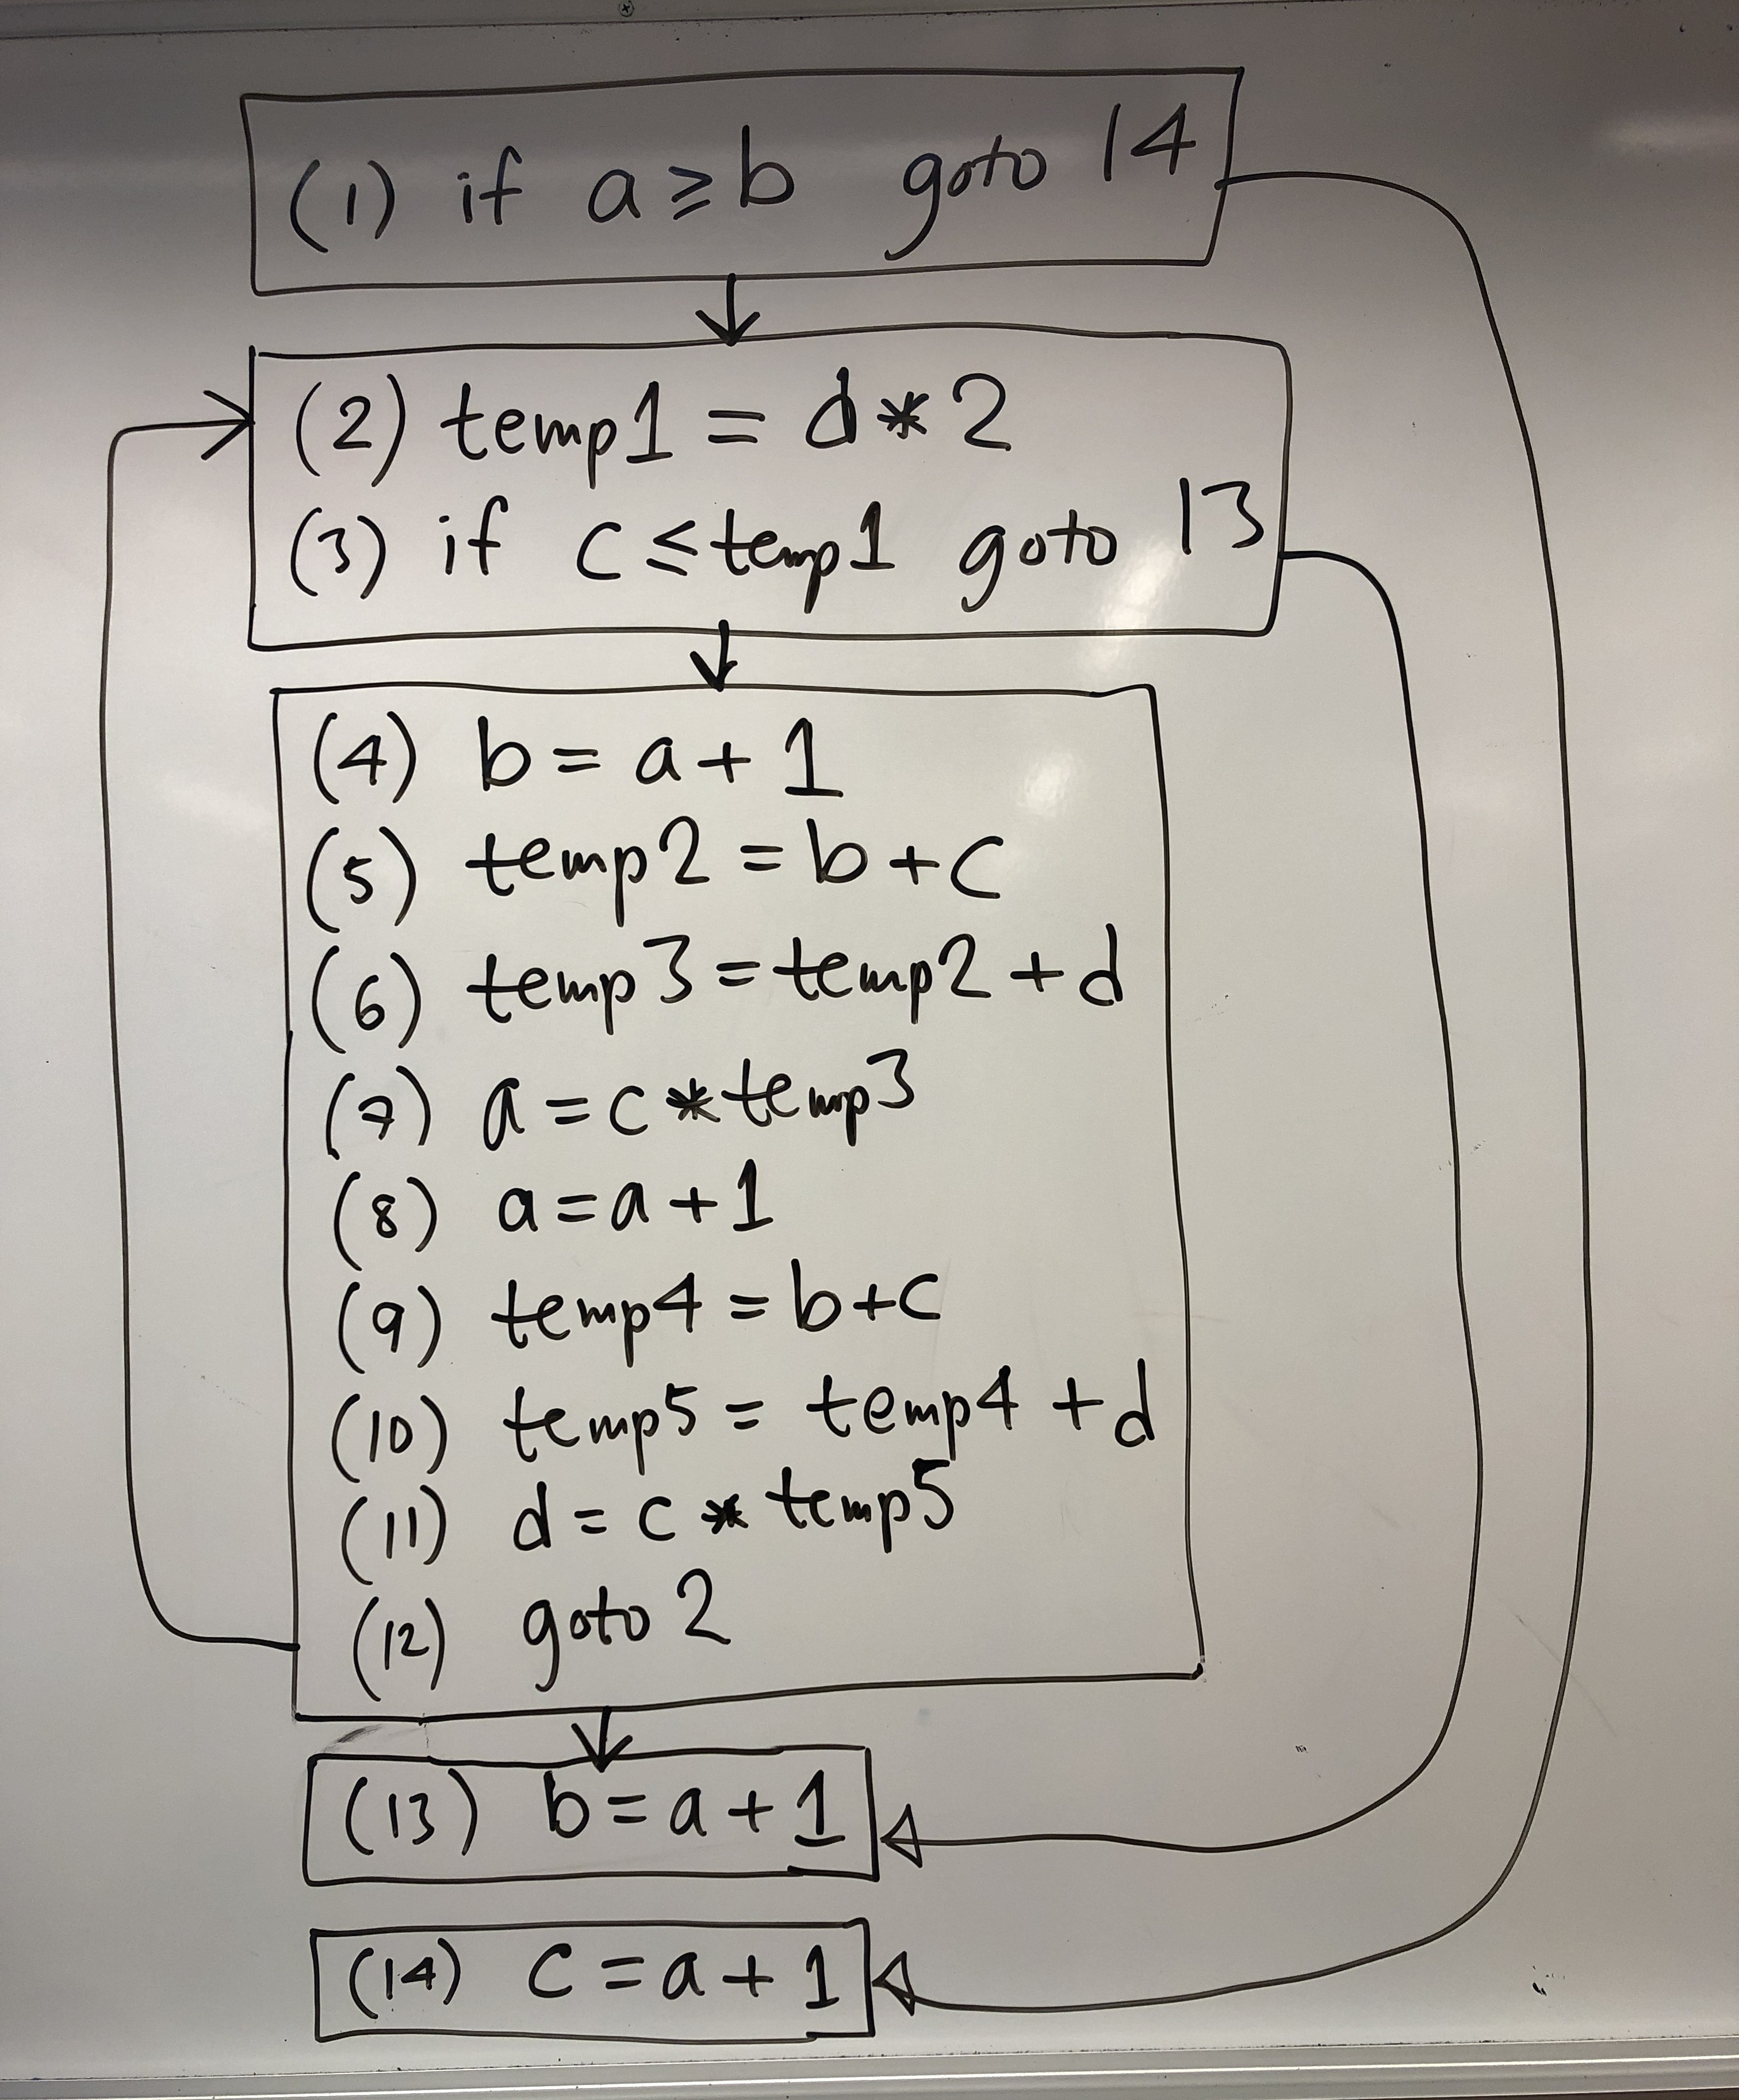 (1) if a ≥ b goto 14
(2) temp1 = d * 2
(3) if c ≤ temp1 goto 13
(4) b = a + 1
(5) temp2 = b + c
(6) temp3 = temp2 + d
(7) a = c * temp3
(8) a = a + 1
(9) temp4 = b + c
(10) temp5 = temp4 + d
(11) d = c * temp5
(12) goto 2
(13) b = a + 1
(14) c = a + 1